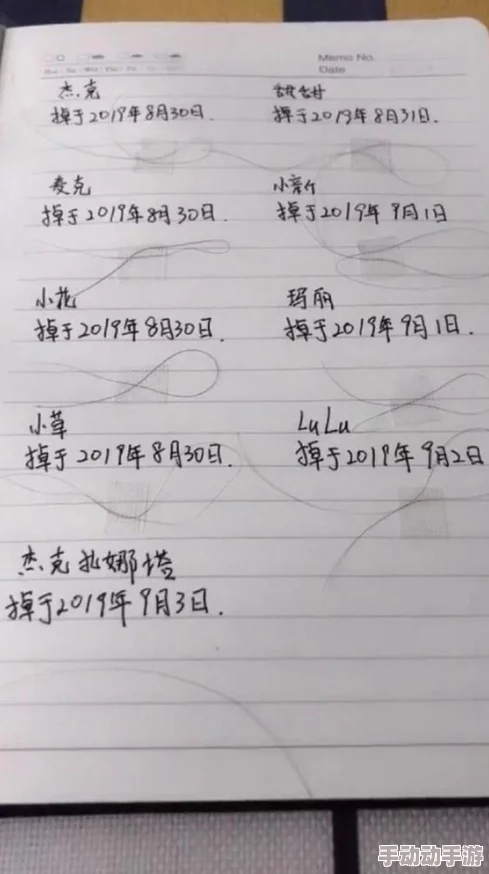 Memo No.
Date
杰克
掉于2019年8月30日.
甜甜
掉于2019年8月31日.
麦克
掉于2019年8月30日.
掉于2019年9月1日
小花
掉于2019年8月30日.
玛丽
掉于2019年9月1日.
小草
掉于2019年8月30日.
LuLu
掉于2019年9月2日
杰克扎娜塔
掉于2019年9月3日.
手动动手游